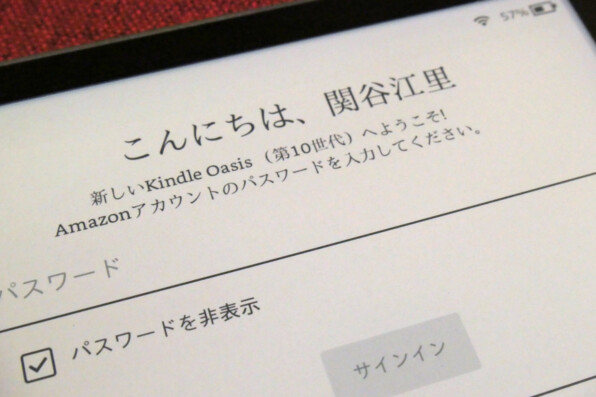 57%
こんにちは、関谷江里
新しいKindle Oasis（第10世代）へようこそ!
Amazonアカウントのパスワードを入力してください。
パスワード
パスワードを非表示
サインイン